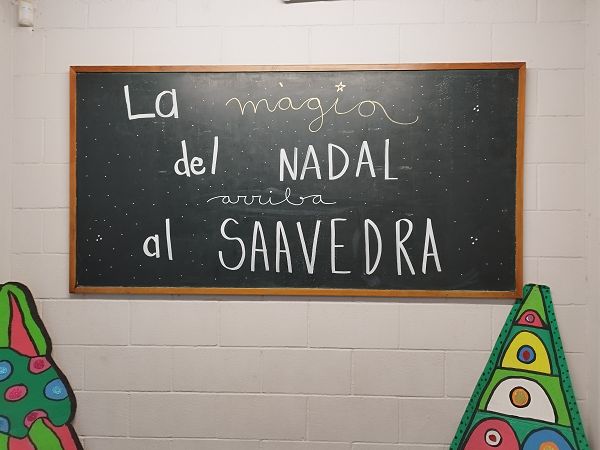 La màgia
del NADAL
arriba
al SAAVEDRA